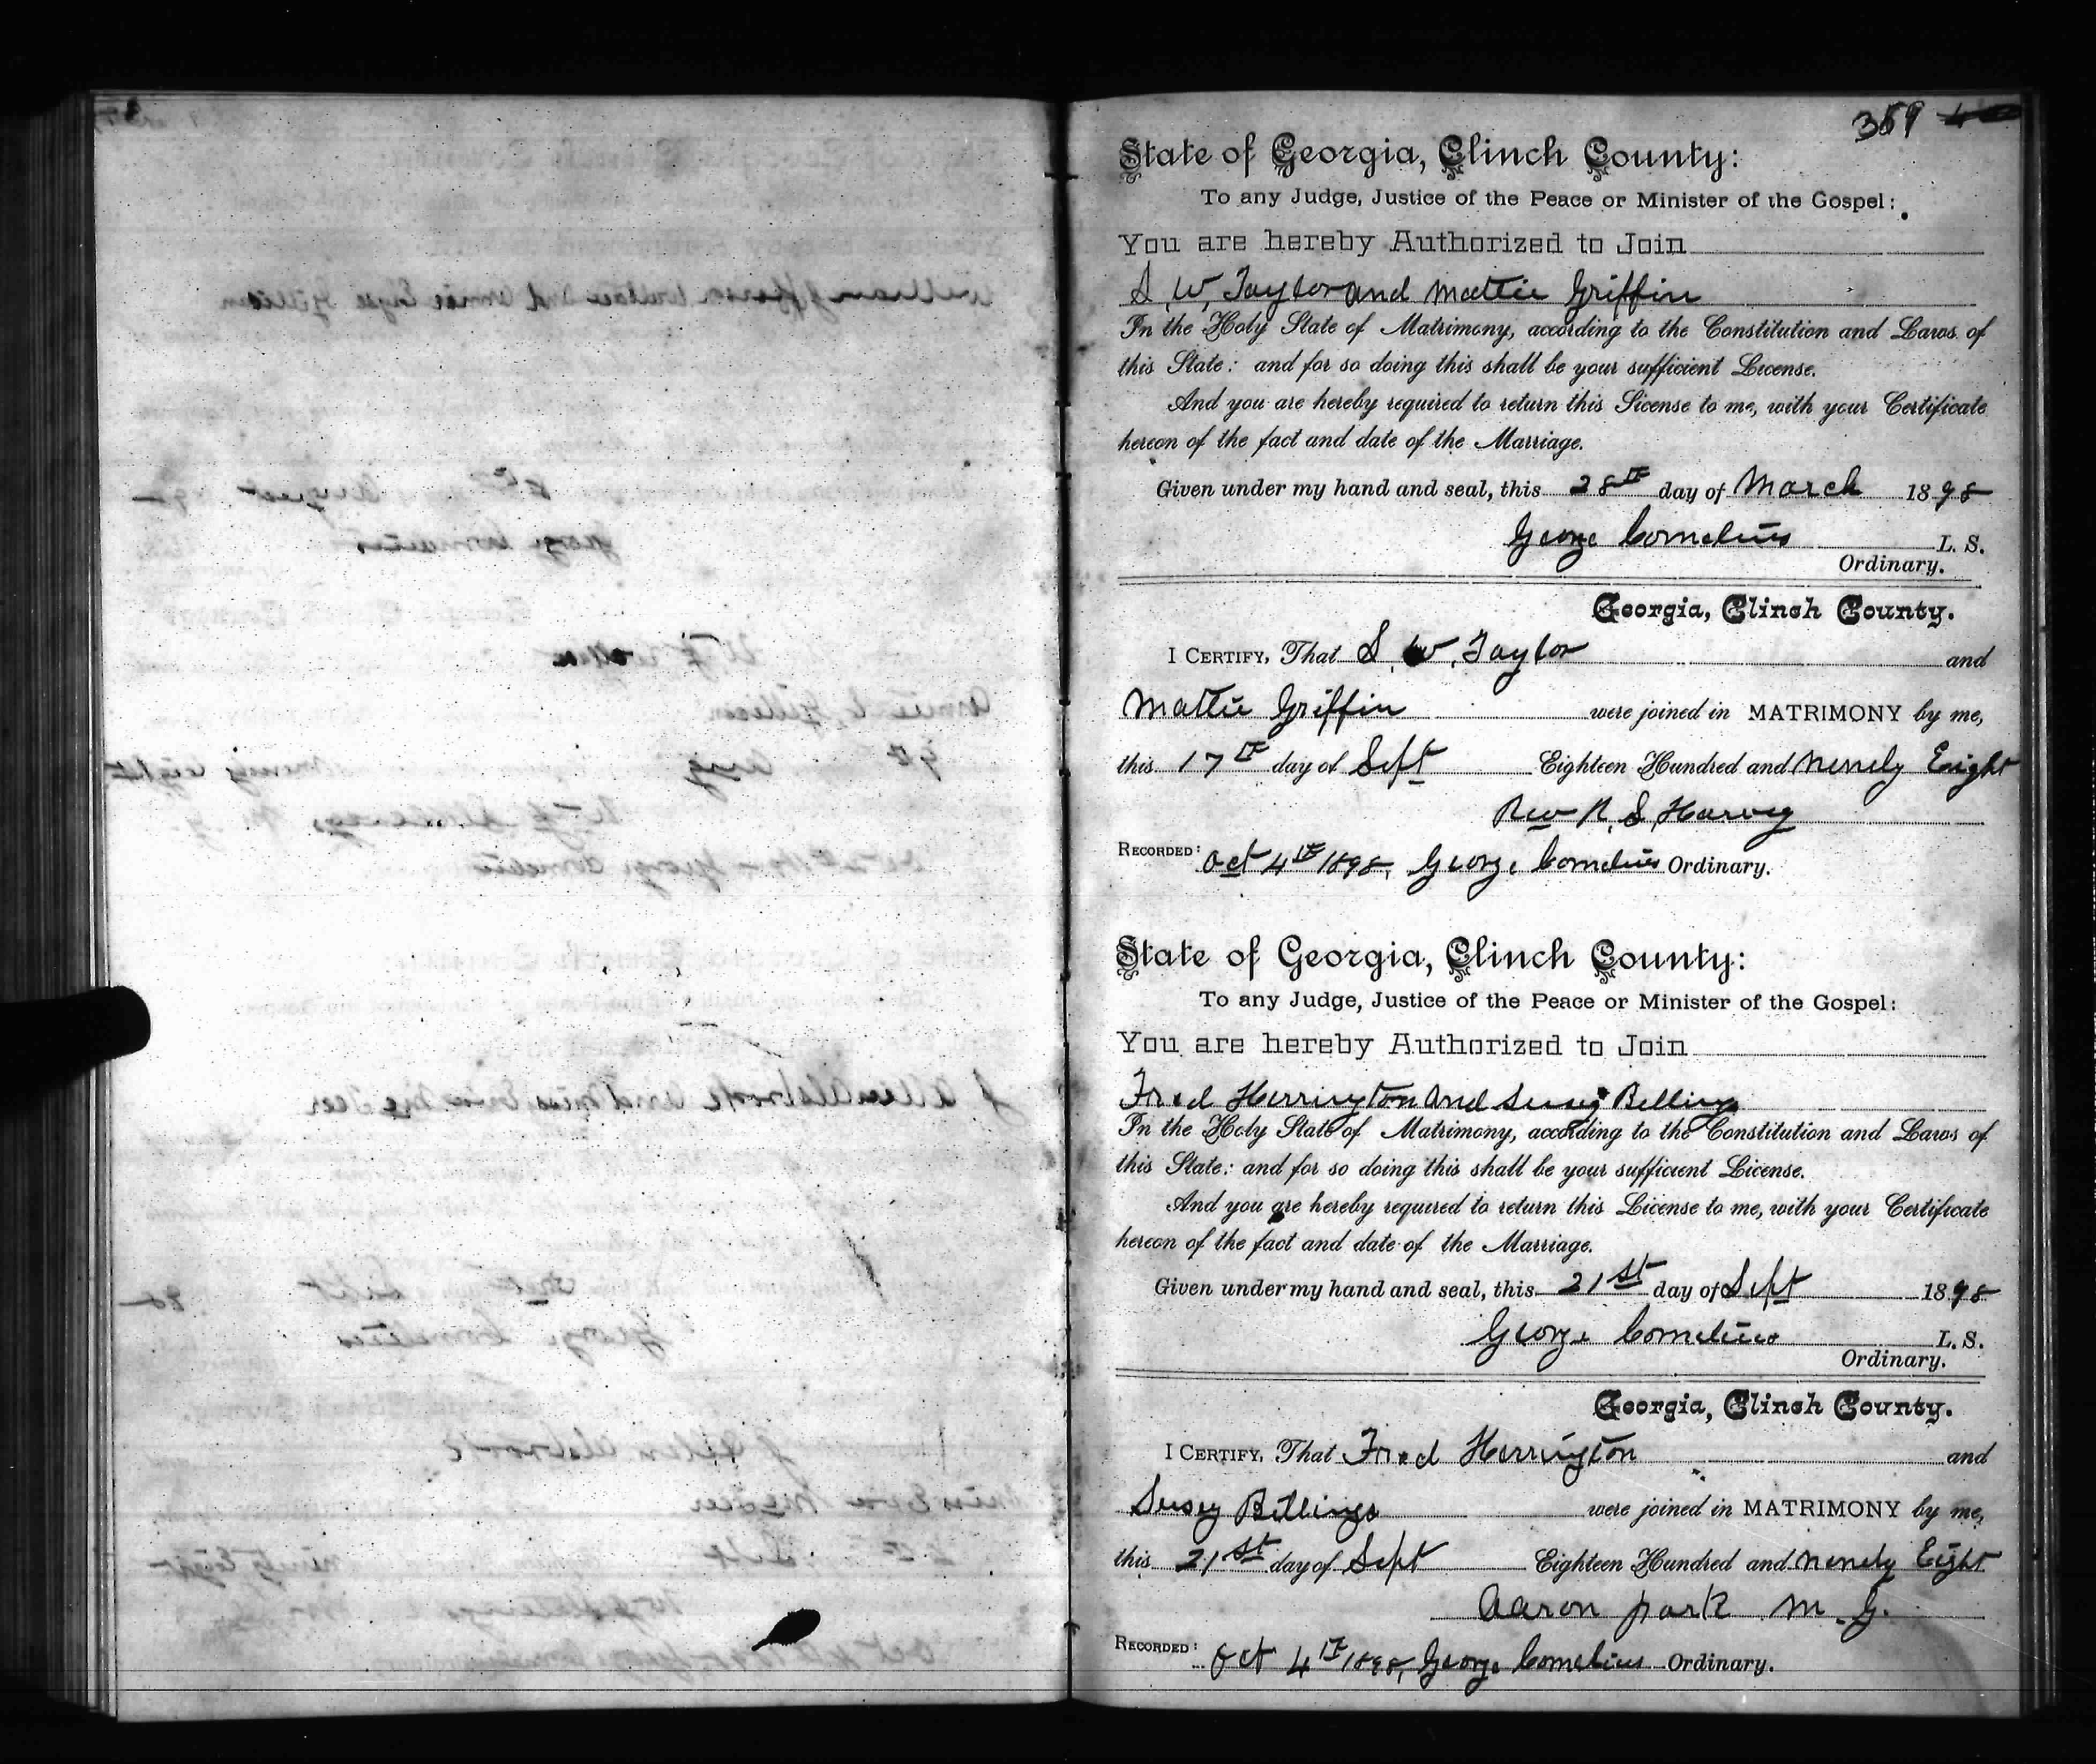 369
State of Georgia, Clinch County:
To any Judge, Justice of the Peace or Minister of the Gospel:
You are hereby Authorized to Join
S. W. Taylor and Mattie Griffin
In the Holy State of Matrimony, according to the Constitution and Laws of
this State: and for so doing this shall be your sufficient License.
And you are hereby required to return this License to me, with your Certificate
hereon of the fact and date of the Marriage.
Given under my hand and seal, this 28th day of March 1898
George Cornelius L. S.
Ordinary.
Georgia, Clinch County.
I CERTIFY, That S. W. Taylor and
Mattie Griffin were joined in MATRIMONY by me,
this 17th day of Sept Eighteen Hundred and ninely Eight
Rev R. S. Harvey
RECORDED: Oct 4th 1898, George Cornelius Ordinary.
State of Georgia, Clinch County:
To any Judge, Justice of the Peace or Minister of the Gospel:
You are hereby Authorized to Join
Fred Herrington and Susey Billings
In the Holy State of Matrimony, according to the Constitution and Laws of
this State: and for so doing this shall be your sufficient License.
And you are hereby required to return this License to me, with your Certificate
hereon of the fact and date of the Marriage.
Given under my hand and seal, this 21st day of Sept 1898
George Cornelius L. S.
Ordinary.
Georgia, Clinch County.
I CERTIFY, That Fred Herrington and
Susey Billings were joined in MATRIMONY by me,
this 21st day of Sept Eighteen Hundred and ninely Eight
Aaron park M. G.
RECORDED: Oct 4th 1898, George Cornelius Ordinary.